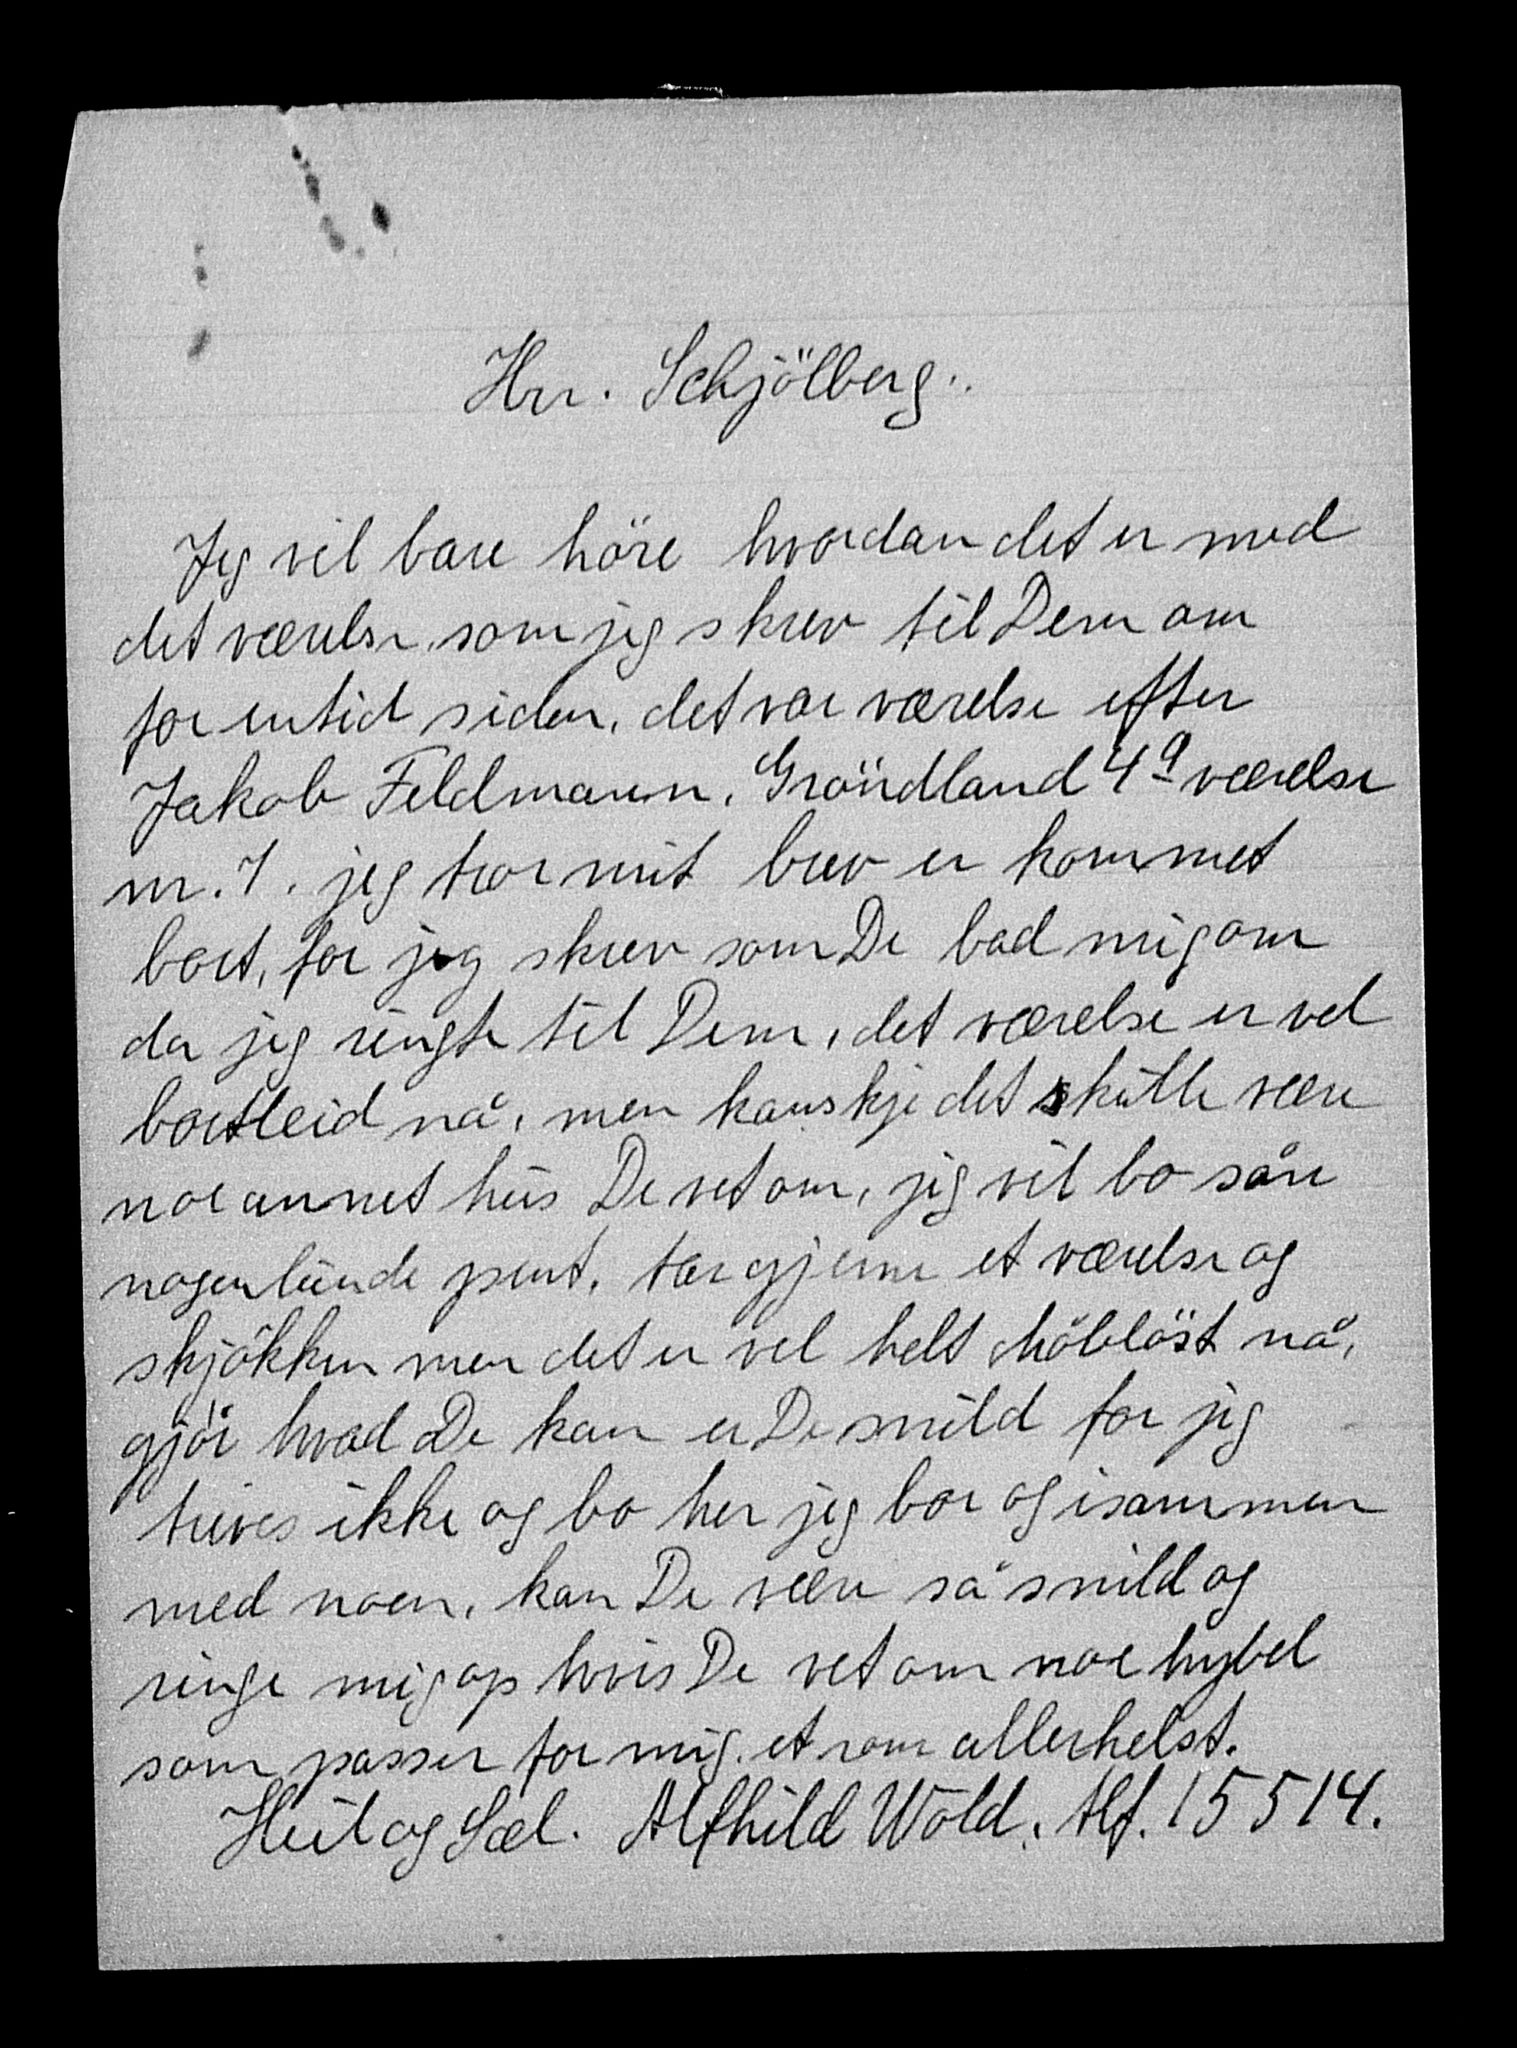 Hrr. Schjölberg.
Jeg vil bare höre hvordan det er med
det værelse, som jeg skrev til Dem om
for en tid siden, det var værelse efter
Jakob Feldmann, Gröndland 4a værelse
nr. 7. jeg tror mit brev er kommet
bort, for jeg skrev som De bad mig om
da jeg ringte til Dem, det værelse er vel
bortleid nå, men kanskje det skulle være
noe annet hus De vet om, jeg vil bo såre
nogenlunde pent, tar gjerne et værelse og
skjökken men det er vel helt möblöst nå,
gjör hvad De kan er De snild for jeg
trives ikke og bo her jeg bor og isammen
med noen, kan De være så snild og
ringe mig op hvis De vet om noe hybel
som passer for mig. et rom allerhelst.
Heil og Sæl. Alfhild Wold. tlf. 15514.